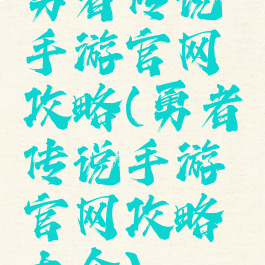 勇者传说
手游官网
攻略(勇者
传说手游
官网攻略
大全)